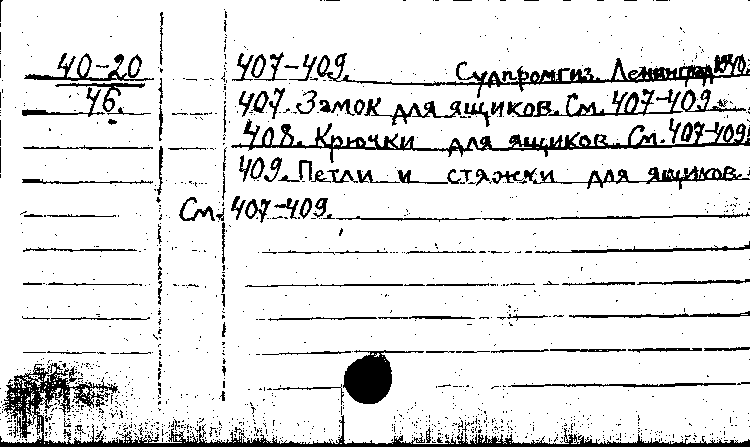 40-20 407-409. Судпромгиз. Ленинград 1940.
46. 407. Замок для ящиков. См. 407-409.
408. Крючки для ящиков. См. 407-409.
409. Петли и стяжки для ящиков.
См. 407-409.